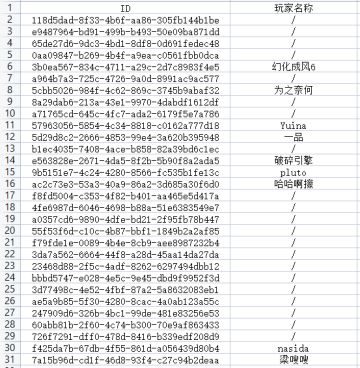 ID 玩家名称
1
2 118d5dad-8f33-4b6f-aa86-305fb144b1be /
3 e9487964-bd91-499b-b493-50e09ba871dd /
4 65de27d6-9dc3-4bd1-8df8-0d691fedec48 /
5 0aa09847-b269-4b4f-a9ea-c0561fbb0dca /
6 3b0ea567-834c-4711-a29c-2d7c8983f4e5 幻化成风6
7 a964b7a3-725c-4726-9a0d-8991ac9ac577 /
8 5cbb5026-984f-4c62-869c-3745b9abaf32 为之奈何
9 8a29dab6-213a-43e1-9970-4dabdf1612df /
10 a71765cd-645c-4fc7-ada2-6179f5e7a786 /
11 57963056-5854-4c34-8818-c0162a777d18 Yuina
12 5d29d8c2-2666-4853-99e4-3a620b395948 一品
13 b1ec4035-7408-4ace-b858-82a39bd6c1ec /
14 e563828e-2671-4da5-8f2b-5b90f8a2ada5 破碎引擎
15 9b5151e7-4c24-4280-8566-fc535b1fe13c pluto
16 ac2c73e3-53a3-40a9-86a2-3d685a30f6d0 哈哈啊擦
17 f8fd5004-c353-4f82-b401-aa465e5d417a /
18 4fe6987d-6046-4698-b88a-51e6383549e7 /
19 a0357cd6-9890-4dfe-bd21-2f95fb78b447 /
20 55f53f6d-c10c-4b87-bbf1-1849b2a2af85 /
21 f79fde1e-0089-4b4e-8cb9-aee8987232b4 /
22 3da7a562-6664-44f8-a28d-45aa14da27da /
23 23468d88-2f5c-4adf-8262-6297494dbb12 /
24 bbbd5747-e028-4e5c-9e45-dbd9f9952f3d /
25 3d77498c-4e52-4fbf-87a2-5a8632083eb1 /
26 ae5a9b85-5f30-4280-8cac-4a0ab123a55c /
27 247909d6-326b-4bc1-99de-481e83256e53 /
28 60abb81b-2f60-4c74-b300-70e9af863433 /
29 726f7291-dff0-478d-8416-b339edf208d9 /
30 f425da7b-67db-4f55-861d-a056439d80b4 nasida
31 7a15b96d-cd1f-46d8-93f4-c27c94b2deaa 梁嗖嗖